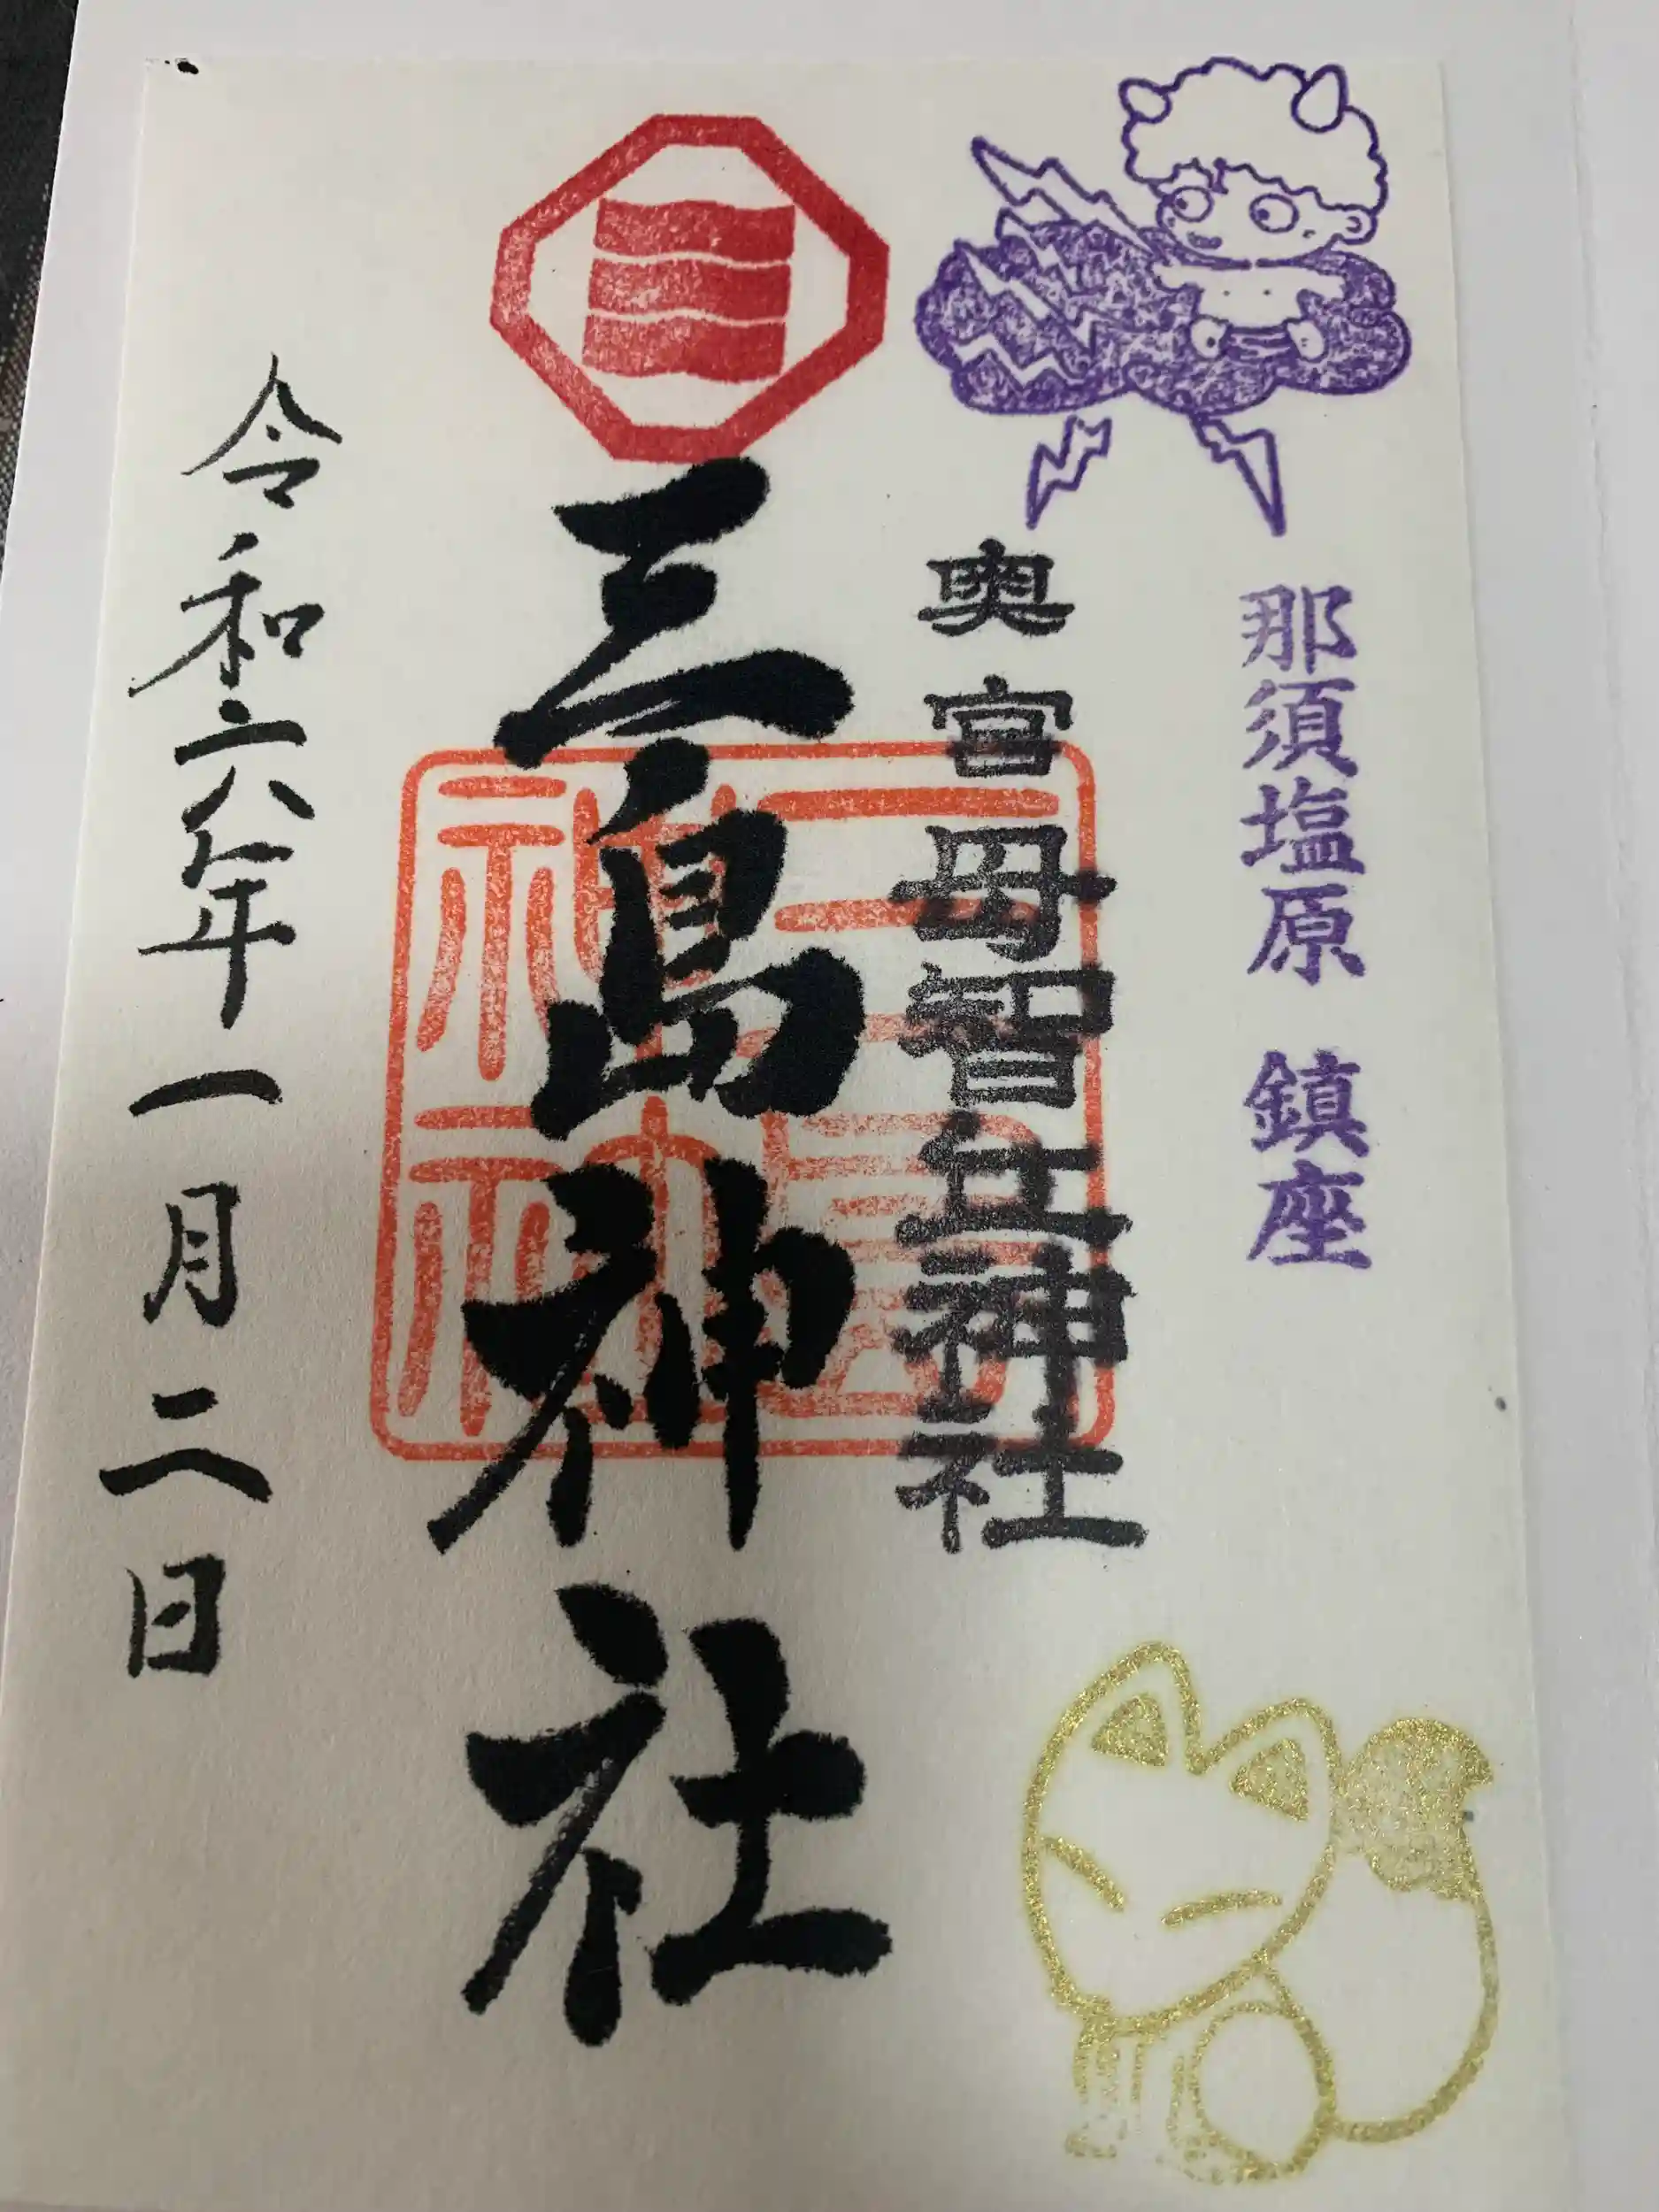 那須塩原 鎮座
奥宮 母智丘神社
三島神社
三島神社
令和六年一月二日